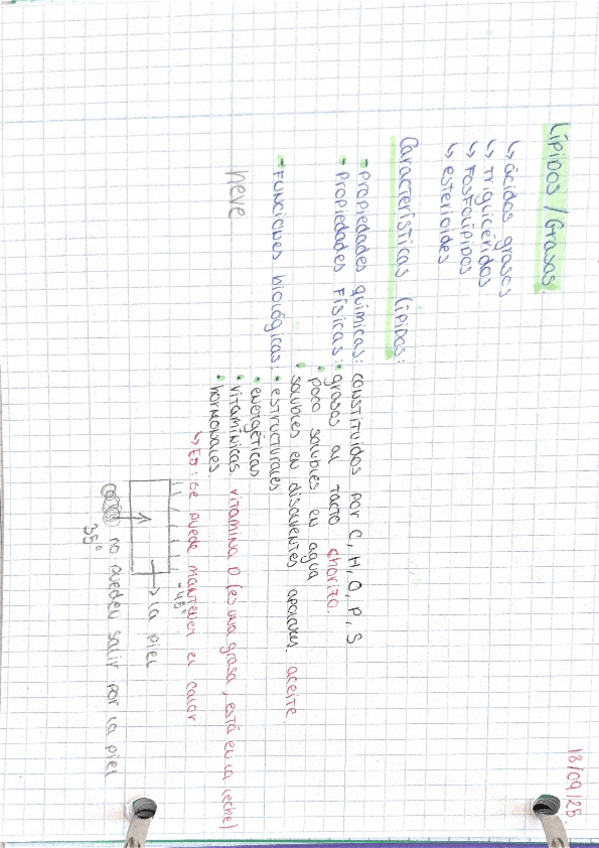 18/09/25.
Lípidos / Grasas.
↳ ácidos grasos
↳ triglicéridos
↳ Fosfolípidos
↳ esteroides
Características lípidos:
- Propiedades químicas: constituidos por C, H, O, P, S
- Propiedades Físicas: • grasos al tacto chorizo.
• poco solubles en agua
• solubles en disolventes apolares. aceite
- Funciones biológicas: • estructurales
• energéticas
• vitamínicas. vitamina D (es una grasa, está en la leche)
• hormonales
↳ EJ: se puede mantener el calor
-45°
→ la piel
no pueden salir por la piel
35°